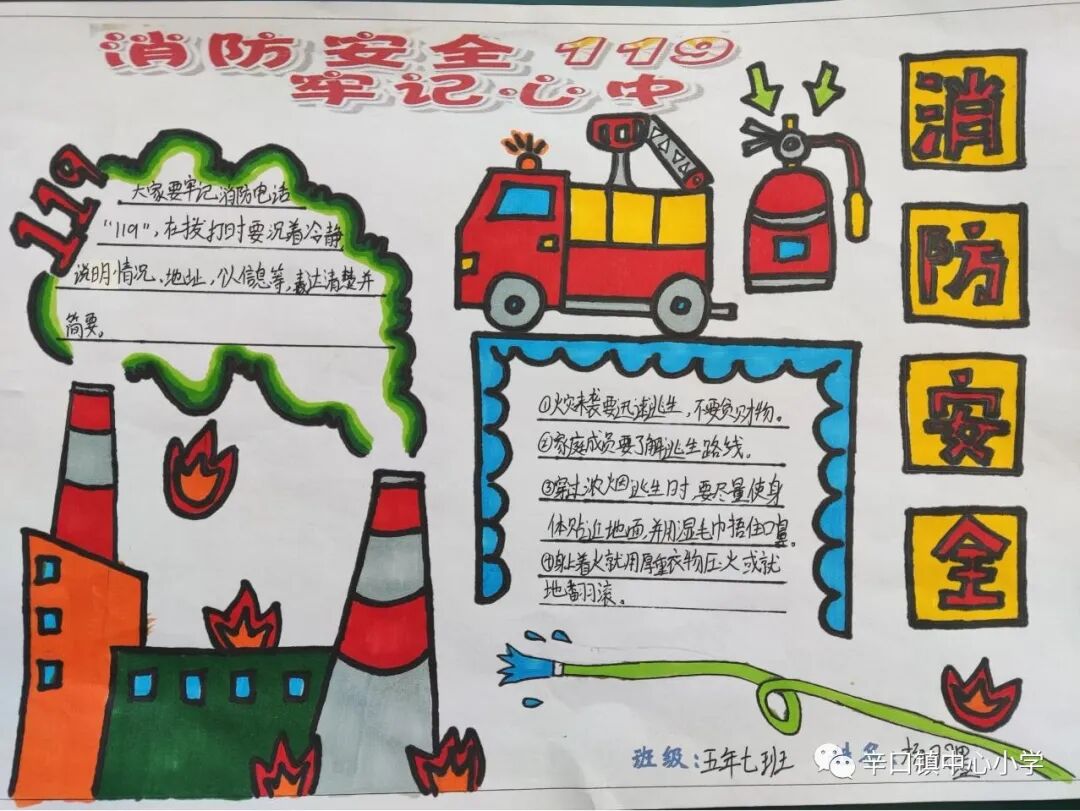 消防安全119
牢记心中
119
大家要牢记消防电话
“119”,在拨打时要沉着冷静
说明情况、地址,个人信息等,表达清楚并
简要。
①火灾来袭要迅速逃生,不要贪财物。
②家庭成员要了解逃生路线。
③穿过浓烟逃生时,要尽量使身
体贴近地面,并用湿毛巾捂住口鼻。
④身上着火就用厚重衣物压火或就
地翻滚。
消
防
安
全
班级:五年七班
辛口镇中心小学